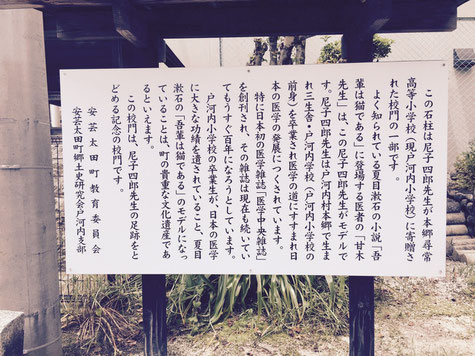 この石柱は尼子四郎先生が本郷尋常
高等小学校（現戸河内小学校）に寄贈さ
れた校門の一部です。
よく知られている夏目漱石の小説「吾
輩は猫である」に登場する医者の「甘木
先生」は、この尼子四郎先生がモデルで
す。尼子四郎先生は戸河内村本郷で生ま
れ三生舎・戸河内学校（戸河内小学校の
前身）を卒業され医学の道にすすまれ日
本の医学の発展につくされています。
特に日本初の医学雑誌「医学中央雑誌」
を創刊され、その雑誌は現在も続いてい
てもうすぐ百年になろうとしています。
戸河内小学校の卒業生が、日本の医学
に大きな功績を遺されていること、夏目
漱石の「吾輩は猫である」のモデルになっ
ていることは、町の貴重な文化遺産であ
るといえます。
この校門は、尼子四郎先生の足跡をと
どめる記念の校門です。
安芸太田町教育委員会
安芸太田町郷土史研究会戸河内支部